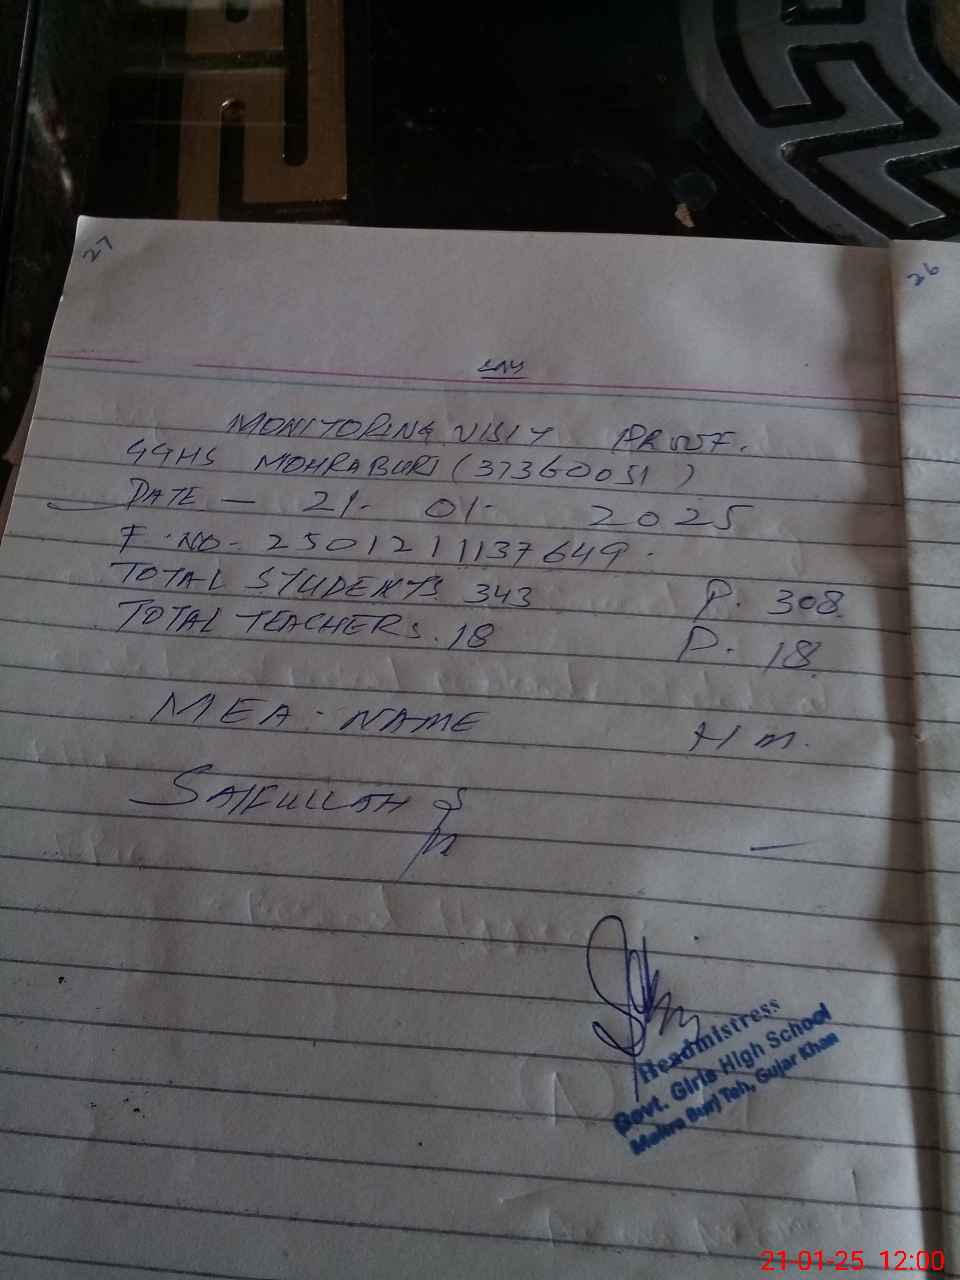 27
26
MONITORING VISIT PROOF.
GGHS MOHRA BURJ (37360051)
DATE — 21. 01. 2025
F. NO - 25012111137649.
TOTAL STUDENTS. 343 P. 308
TOTAL TEACHERS. 18 P. 18
MEA. NAME H m.
SAIFULLAH
Headmistress
Govt. Girls High School
Mohra Burj Teh, Gujar Khan
21-01-25 12:00